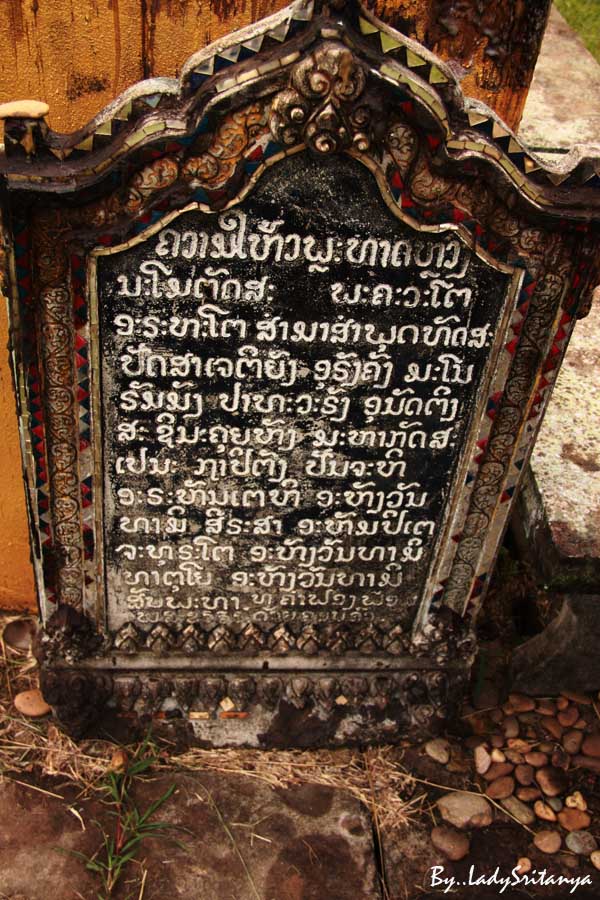 ຄວາມໃຫ້ວພຼະທາດຫຼວງ
ນະໂມຕັດສະ ພະຄະວະໂຕ
ອະຣະຫະໂຕ ສາມາສຳພຸດທັດສະ
ປັດສາເຈຕິຍັງ ອຸຣັງຄັງ ມະໂນ
ຣັມມັງ ປາຫະວະຣັງ ອຸນັດຕິງ
ສະ ຊິມະຄຸຍຫັງ ມະຫາກັດສະ
ເປນະ ຖາປິຕັງ ປັນຈະຫິ
ອະຣະຫັນເຕຫິ ອະຫັງວັນ
ທາມິ ສີຣະສາ ອະຫັມປິເຕ
ຈະທຸຣະໂຕ ອະຫັງວັນທາມິ
ທາຕຸໂນ ອະຫັງວັນທາມິ
ສັບພະທາ.
By..LadySritanya